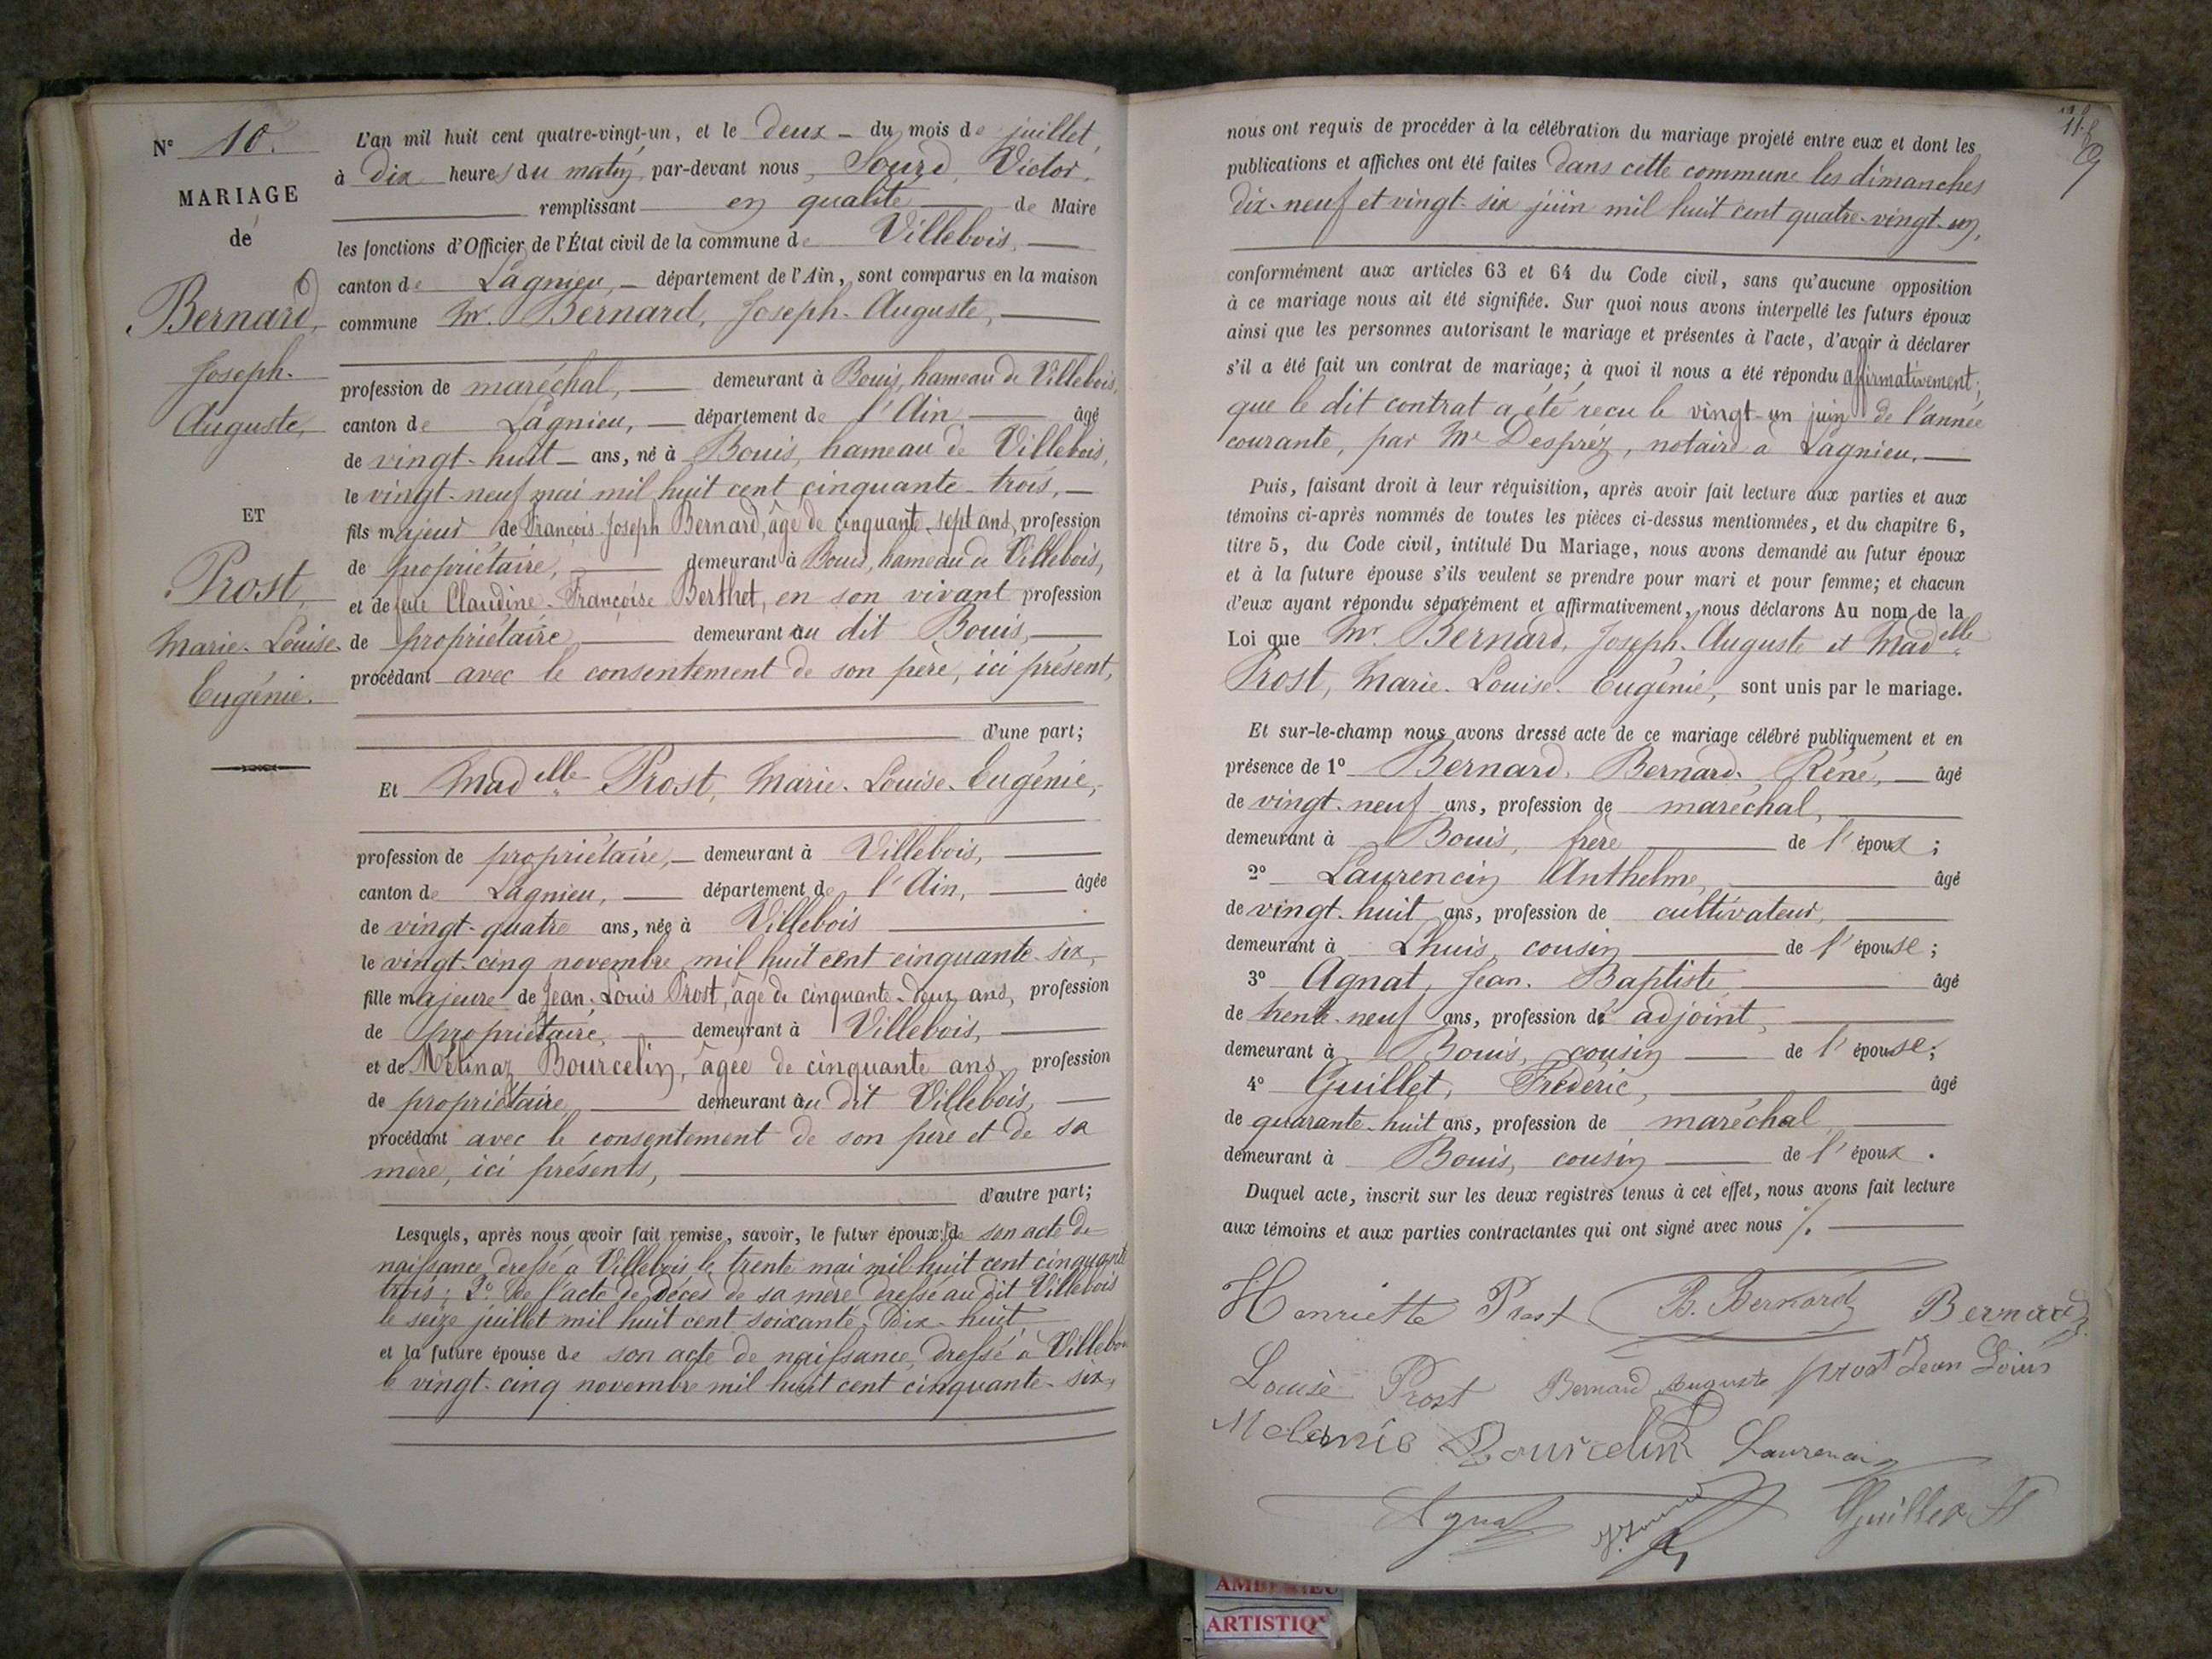 N° 10.
MARIAGE
de
Bernard,
Joseph-
Auguste,
ET
Prost,
Marie-Louise-
Eugénie.
L'an mil huit cent quatre-vingt-un, et le deux - du mois de juillet,
à dix heures du matin, par-devant nous, Sourd, Victor,
remplissant en qualité de Maire
les fonctions d'Officier de l'État civil de la commune de Villebois,
canton de Lagnieu, département de l'Ain, sont comparus en la maison
commune Mr. Bernard, Joseph-Auguste,
profession de maréchal, demeurant à Bouis, hameau de Villebois,
canton de Lagnieu, département de l'Ain âgé
de vingt-huit ans, né à Bouis, hameau de Villebois,
le vingt-neuf mai mil huit cent cinquante-trois,
fils majeur de François-Joseph Bernard, âgé de cinquante-sept ans, profession
de propriétaire, demeurant à Bouis, hameau de Villebois,
et de feue Claudine-Françoise Berthet, en son vivant profession
de propriétaire demeurant au dit Bouis,
procédant avec le consentement de son père, ici présent,
d'une part;
Et Madelle Prost, Marie-Louise-Eugénie,
profession de propriétaire, demeurant à Villebois,
canton de Lagnieu, département de l'Ain, âgée
de vingt-quatre ans, née à Villebois
le vingt-cinq novembre mil huit cent cinquante-six,
fille majeure de Jean-Louis Prost, âgé de cinquante-deux ans, profession
de propriétaire, demeurant à Villebois,
et de Mélinaz Bourcelin, âgée de cinquante ans, profession
de propriétaire demeurant au dit Villebois,
procédant avec le consentement de son père et de sa
mère, ici présents,
d'autre part;
Lesquels, après nous avoir fait remise, savoir, le futur époux: de son acte de
naissance dressé à Villebois le trente mai mil huit cent cinquante
trois; 2° De l'acte de décès de sa mère dressé au dit Villebois
le seize juillet mil huit cent soixante-dix-huit,
et la future épouse de son acte de naissance, dressé à Villebois
le vingt-cinq novembre mil huit cent cinquante-six,
nous ont requis de procéder à la célébration du mariage projeté entre eux et dont les
publications et affiches ont été faites dans cette commune les dimanches
dix-neuf et vingt-six juin mil huit cent quatre-vingt-un,
conformément aux articles 63 et 64 du Code civil, sans qu'aucune opposition
à ce mariage nous ait été signifiée. Sur quoi nous avons interpellé les futurs époux
ainsi que les personnes autorisant le mariage et présentes à l'acte, d'avoir à déclarer
s'il a été fait un contrat de mariage; à quoi il nous a été répondu affirmativement;
que le dit contrat a été reçu le vingt-un juin de l'année
courante, par Me Despréz, notaire à Lagnieu,
Puis, faisant droit à leur réquisition, après avoir fait lecture aux parties et aux
témoins ci-après nommés de toutes les pièces ci-dessus mentionnées, et du chapitre 6,
titre 5, du Code civil, intitulé Du Mariage, nous avons demandé au futur époux
et à la future épouse s'ils veulent se prendre pour mari et pour femme; et chacun
d'eux ayant répondu séparément et affirmativement, nous déclarons Au nom de la
Loi que Mr Bernard, Joseph-Auguste et Madelle
Prost, Marie-Louise-Eugénie, sont unis par le mariage.
Et sur-le-champ nous avons dressé acte de ce mariage célébré publiquement et en
présence de 1° Bernard, Bernard, Réné, âgé
de vingt-neuf ans, profession de maréchal,
demeurant à Bouis, frère de l'époux;
2° Laurencin Anthelme, âgé
de vingt-huit ans, profession de cultivateur,
demeurant à Lhuis, cousin de l'épouse;
3° Agnat, Jean-Baptiste âgé
de trente-neuf ans, profession de adjoint,
demeurant à Bouis, cousin de l'épouse;
4° Guillet, Frédéric, âgé
de quarante-huit ans, profession de maréchal
demeurant à Bouis, cousin de l'époux.
Duquel acte, inscrit sur les deux registres tenus à cet effet, nous avons fait lecture
aux témoins et aux parties contractantes qui ont signé avec nous ./.
Henriette Prost B. Bernard Bernard
Louise Prost Bernard Auguste prost Jean Louis
Melanie Bourcelin Laurencin
Agnat Guillet
ARTISTIQ